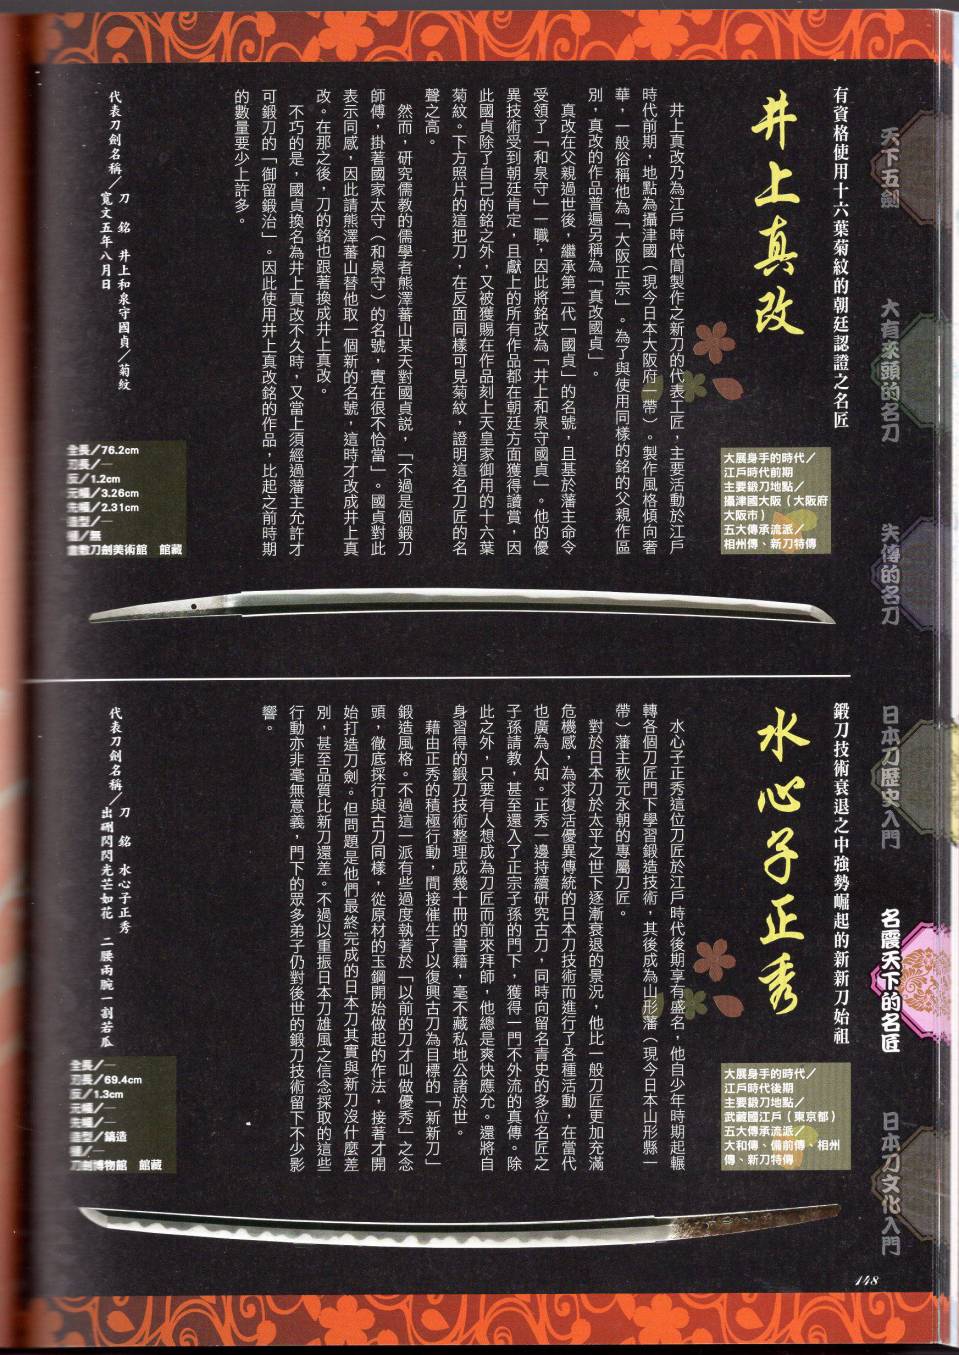 天下五劍
大有來頭的名刀
失傳的名刀
日本刀歷史入門
名震天下的名匠
日本刀文化入門
有資格使用十六葉菊紋的朝廷認證之名匠
井上真改
大展身手的時代／
江戶時代前期
主要鍛刀地點／
攝津國大阪（大阪府
大阪市）
五大傳承流派／
相州傳、新刀特傳
井上真改乃為江戶時代間製作之新刀的代表工匠，主要活動於江戶
時代前期，地點為攝津國（現今日本大阪府一帶）。製作風格傾向奢
華，一般俗稱他為「大阪正宗」。為了與使用同樣的銘的父親作區
別，真改的作品普遍另稱為「真改國貞」。
真改在父親過世後，繼承第二代「國貞」的名號，且基於藩主命令
受領了「和泉守」一職，因此將銘改為「井上和泉守國貞」。他的優
異技術受到朝廷肯定，且獻上的所有作品都在朝廷方面獲得讚賞，因
此國貞除了自己的銘之外，又被獲賜在作品刻上天皇家御用的十六葉
菊紋。下方照片的這把刀，在反面同樣可見菊紋，證明這名刀匠的名
聲之高。
然而，研究儒教的儒學者熊澤蕃山某天對國貞說，「不過是個鍛刀
師傅，掛著國家太守（和泉守）的名號，實在很不恰當」。國貞對此
表示同感，因此請熊澤蕃山替他取一個新的名號，這時才改成井上真
改。在那之後，刀的銘也跟著換成井上真改。
不巧的是，國貞換名為井上真改不久時，又當上須經過藩主允許才
可鍛刀的「御留鍛治」。因此使用井上真改銘的作品，比起之前時期
的數量要少上許多。
代表刀劍名稱／刀　銘　井上和泉守國貞／菊紋
寬文五年八月日
全長／76.2cm
刃長／—
反／1.2cm
元幅／3.26cm
先幅／2.31cm
造型／—
種／無
盒敷刀劍美術館　館藏
鍛刀技術衰退之中強勢崛起的新新刀始祖
水心子正秀
大展身手的時代／
江戶時代後期
主要鍛刀地點／
武藏國江戶（東京都）
五大傳承流派／
大和傳、備前傳、相州
傳、新刀特傳
水心子正秀這位刀匠於江戶時代後期享有盛名，他自少年時期起輾
轉各個刀匠門下學習鍛造技術，其後成為山形藩（現今日本山形縣一
帶）藩主秋元永朝的專屬刀匠。
對於日本刀於太平之世下逐漸衰退的景況，他比一般刀匠更加充滿
危機感，為求復活優異傳統的日本刀技術而進行了各種活動，在當代
也廣為人知。正秀一邊持續研究古刀，同時向留名青史的多位名匠之
子孫請教，甚至還入了正宗子孫的門下，獲得一門不外流的真傳。除
此之外，只要有人想成為刀匠而前來拜師，他總是爽快應允。還將自
身習得的鍛刀技術整理成幾十冊的書籍，毫不藏私地公諸於世。
藉由正秀的積極行動，間接催生了以復興古刀為目標的「新新刀」
鍛造風格。不過這一派有些過度執著於「以前的刀才叫做優秀」之念
頭，徹底採行與古刀同樣，從原材的玉鋼開始做起的作法，接著才開
始打造刀劍。但問題是他們最終完成的日本刀其實與新刀沒什麼差
別，甚至品質比新刀還差。不過以重振日本刀雄風之信念採取的這些
行動亦非毫無意義，門下的眾多弟子仍對後世的鍛刀技術留下不少影
響。
代表刀劍名稱／刀　銘　水心子正秀
出硎閃閃光芒如花　二腰兩腕一割若瓜
全長／—
刃長／69.4cm
反／1.3cm
元幅／—
先幅／—
造型／鎬造
種／—
刀劍博物館　館藏
148